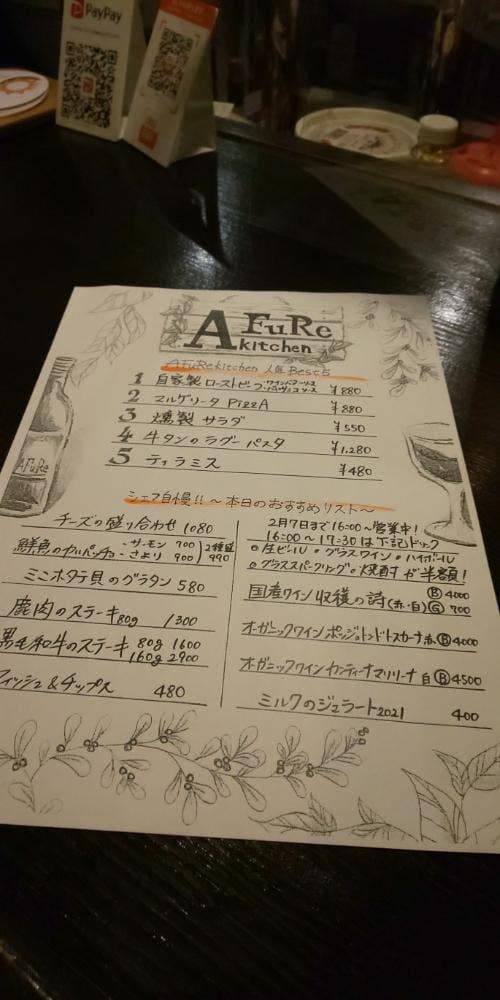 PayPay
AFuRe
kitchen
AFuRe kitchen 人気 Best5
1 自家製 ローストビーフ ¥880
2 マルゲリータ PizzA ¥880
3 燻製 サラダ ¥550
4 牛タンのラグー パスタ ¥1,280
5 ティラミス ¥480
AFuRe
シェフ自慢!! 〜本日のおすすめリスト〜
チーズの盛り合わせ 1080
鮮魚のカルパッチョ ・サーモン 700
・さより 900
2種盛 990
ミニホタテ貝のグラタン 580
鹿肉のステーキ 80g 1300
黒毛和牛のステーキ 80g 1600
160g 2900
フィッシュ&チップス 480
2月7日まで16:00〜営業中!
16:00〜17:30は下記ドリンク
○生ビール ○グラスワイン ○ハイボール
○グラススパークリング ○焼酎 が半額!
国産ワイン 収穫の詩(赤・白) Ⓑ 4000
Ⓖ 700
オーガニックワイン ポッジョトンド トスカーナ 赤 Ⓑ4000
オーガニックワイン カンティーナマリリーナ 白 Ⓑ4500
ミルクのジェラート2021 400